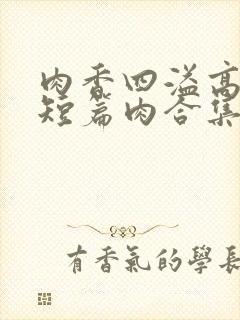 肉香四溢高
短篇肉合集
有香氣的學長